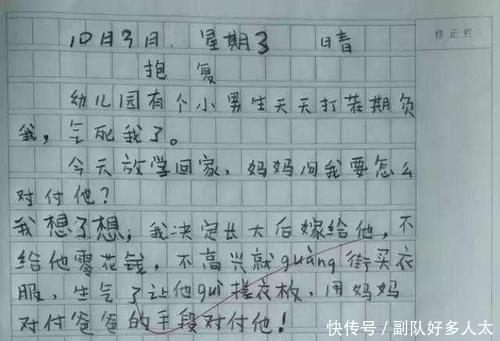 10月3日、星期3 日晴
抱复
幼儿园有个小男生天天打茬期负
我，气死我了。
今天放学回家，妈妈问我要怎么
对付他？
我想了想，我决定长大后嫁给他，不
给他零花钱，不高兴就guàng街买衣
服，生气了让他guì搓衣板，用妈妈
对付爸爸的手段对付他！
修正栏
快传号/副队好多人太